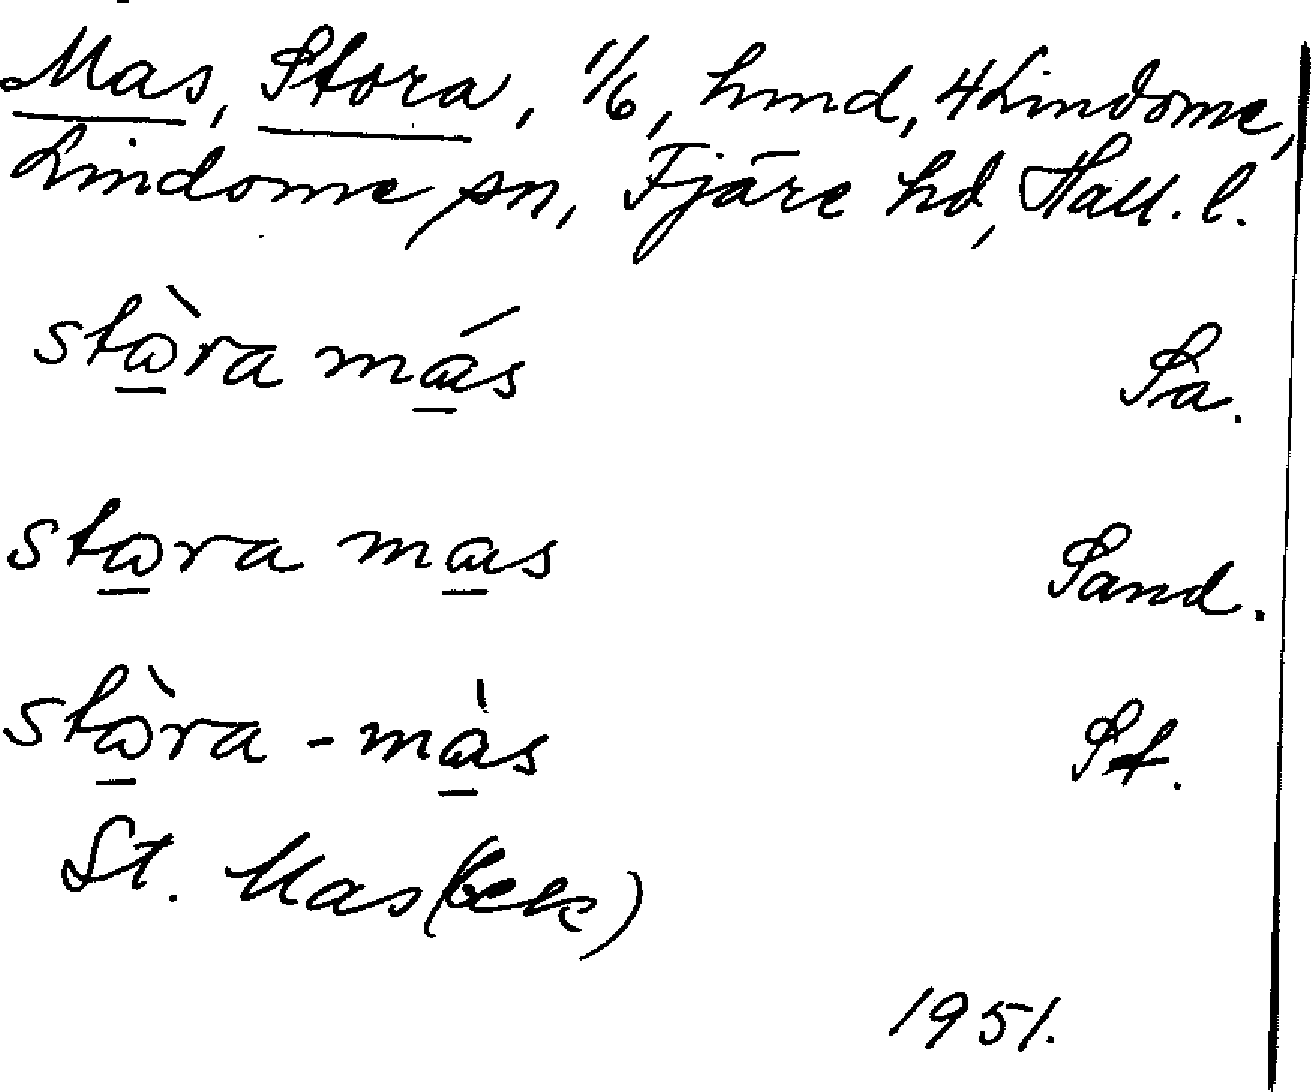 Mas, Stora, 1/6, hmd, 4 Lindome,
Lindome sn, Fjäre hd, Hall. l.
stɷ̀ra más Sa.
stɷra mas Sand.
stɷ̀ra-màs St.
St. Mas (bek)
1951.